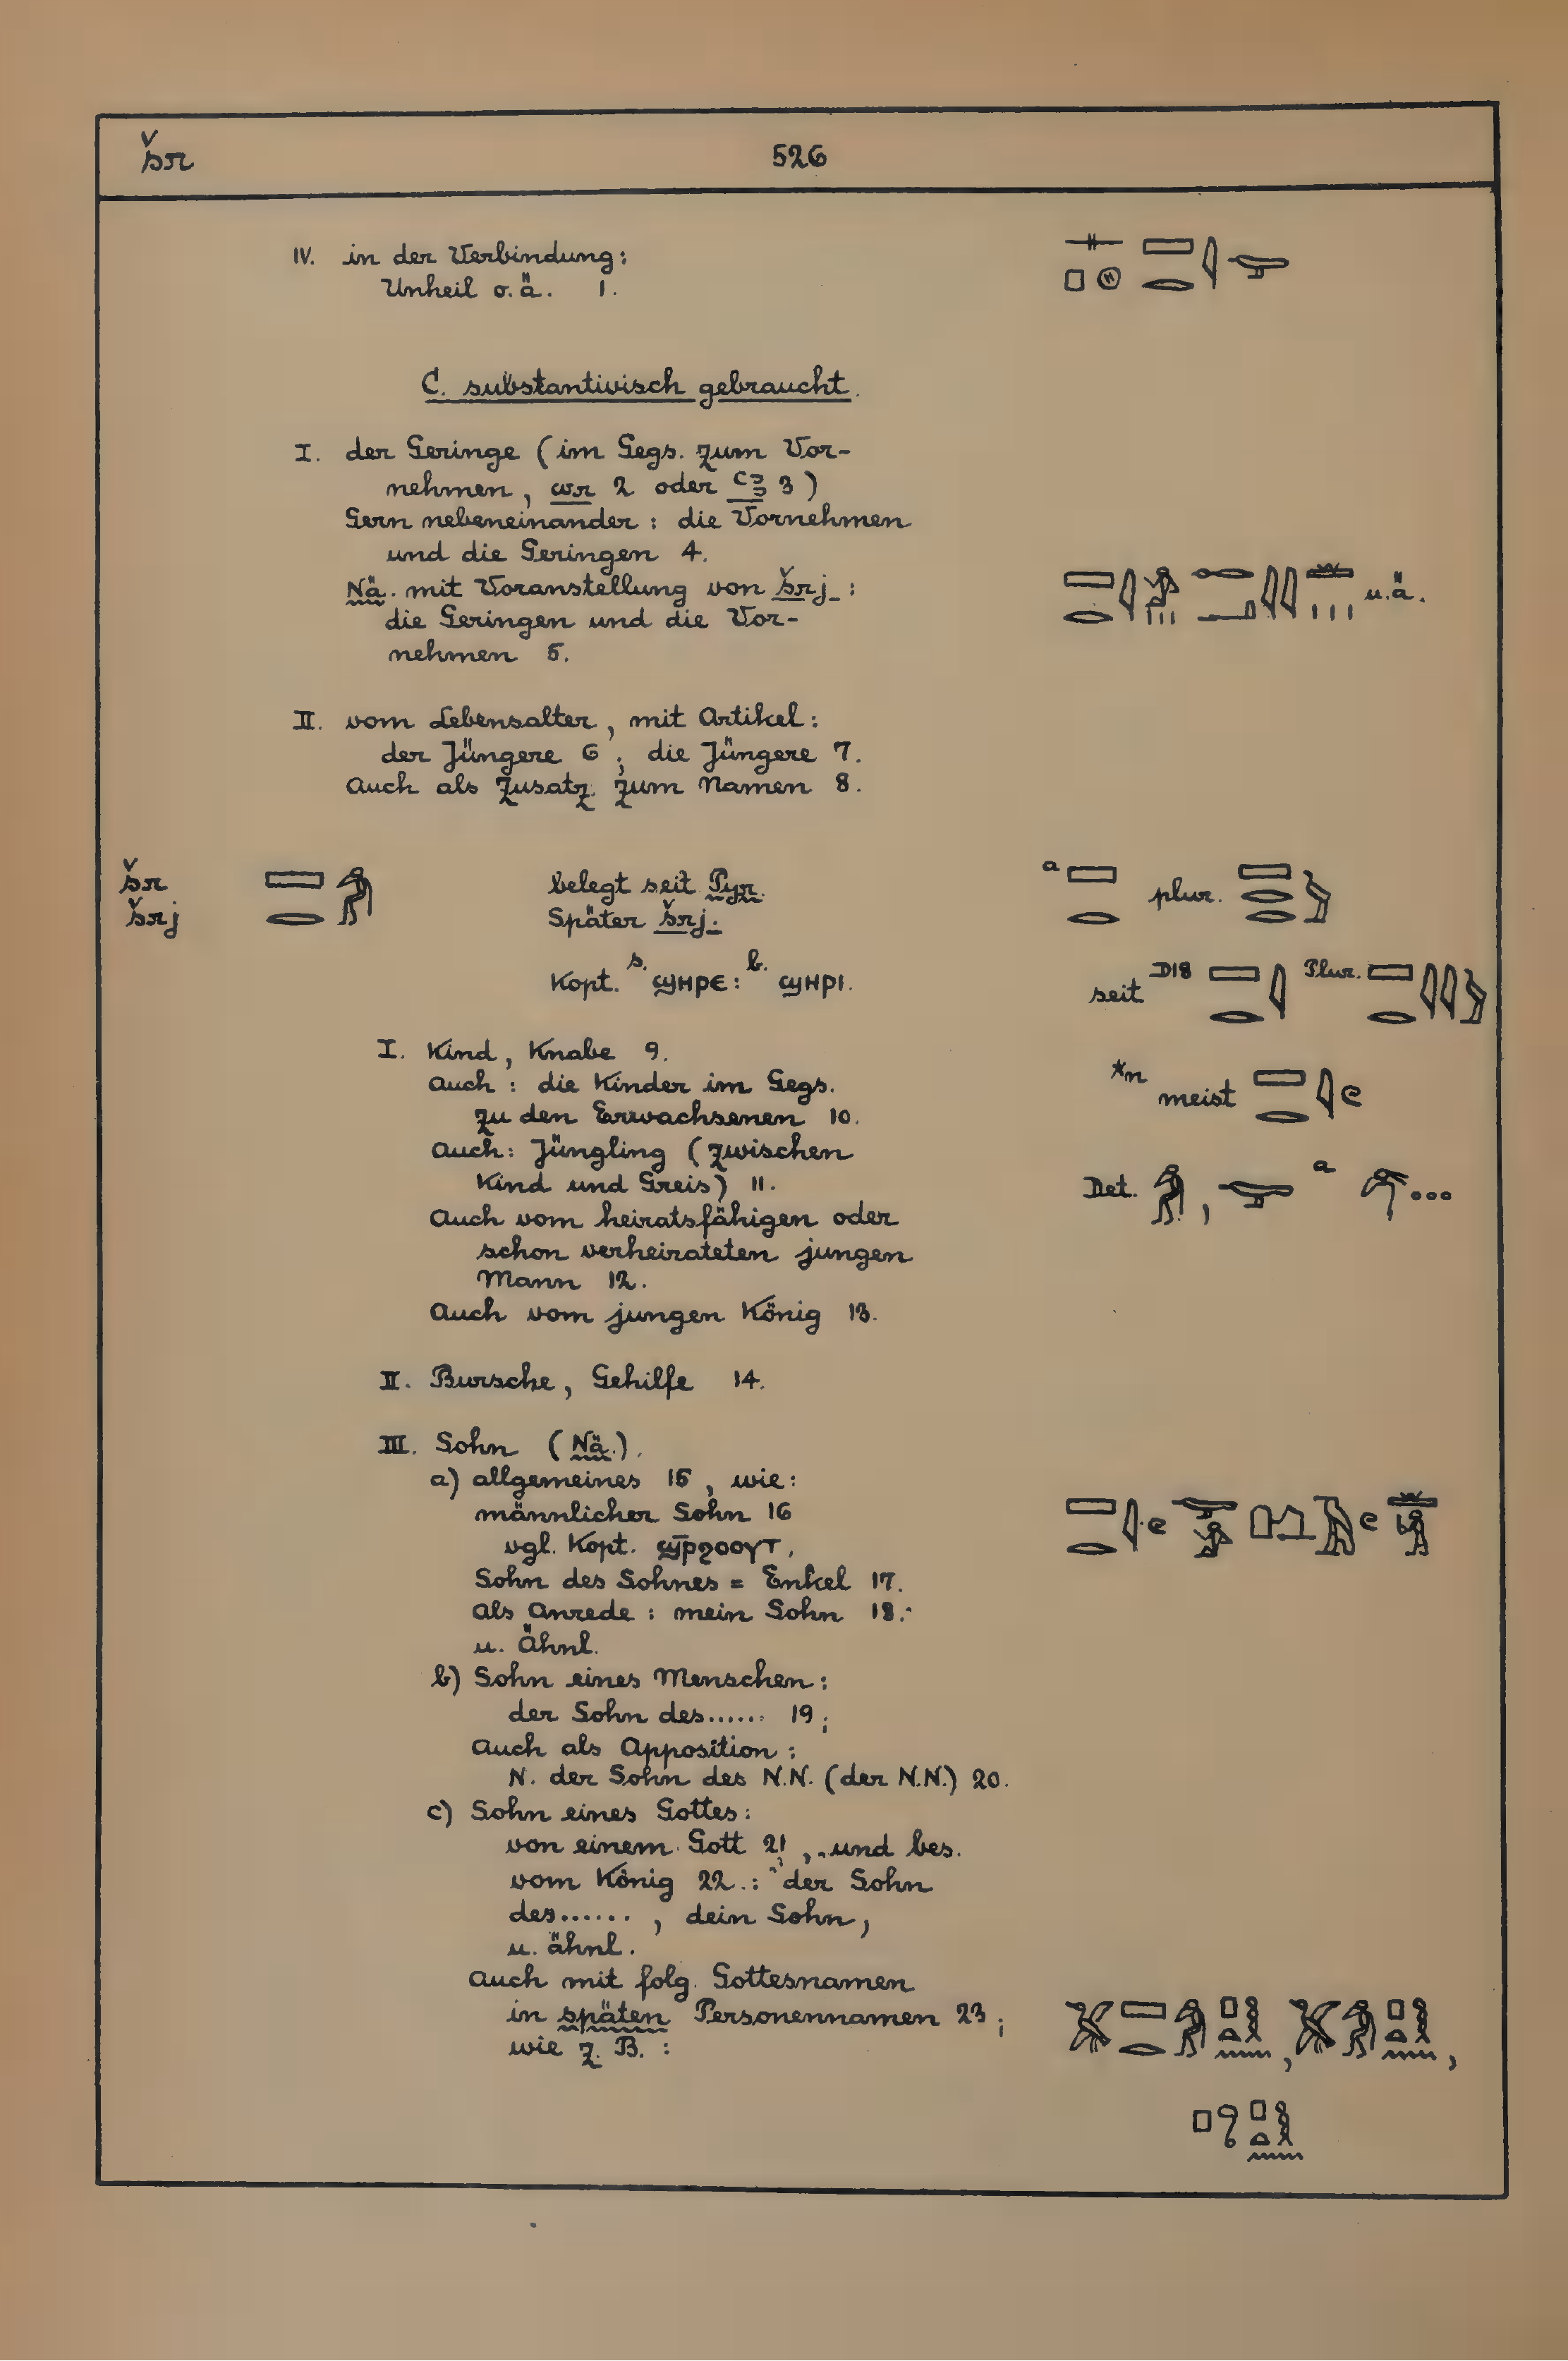 šr 526
IV. in der Verbindung:
Unheil o.ä. 1.
C. substantivisch gebraucht.
I. der Geringe (im Gegs. zum Vor-
nehmen, wr 2 oder ꜥꜣ 3)
Gern nebeneinander: die Vornehmen
und die Geringen 4.
Nä. mit Voranstellung von šrj: u.ä.
die Geringen und die Vor-
nehmen 5.
II. vom Lebensalter, mit Artikel:
der Jüngere 6; die Jüngere 7.
Auch als Zusatz zum Namen 8.
šr belegt seit Pyr. a plur.
šrj Später šrj.
Kopt. s. ϣHPE: b. ϣHPI. seit D18 Plur.
I. Kind, Knabe 9.
Auch: die Kinder im Gegs. *n meist
zu den Erwachsenen 10.
Auch: Jüngling (zwischen
Kind und Greis) 11. Det. , a ...
Auch vom heiratsfähigen oder
schon verheirateten jungen
Mann 12.
Auch vom jungen König 13.
II. Bursche, Gehilfe 14.
III. Sohn (Nä.).
a) allgemeines 15, wie:
männlicher Sohn 16
vgl. Kopt. ϣⲣ̄ϩⲟⲟⲩⲧ,
Sohn des Sohnes = Enkel 17.
als Anrede: mein Sohn 18.
u. Ähnl.
b) Sohn eines Menschen:
der Sohn des...... 19;
Auch als Apposition:
N. der Sohn des N.N. (der N.N.) 20.
c) Sohn eines Gottes:
von einem Gott 21, und bes.
vom König 22.: der Sohn
des......, dein Sohn,
u. ähnl.
Auch mit folg. Gottesnamen
in späten Personennamen 23;
wie z. B.: